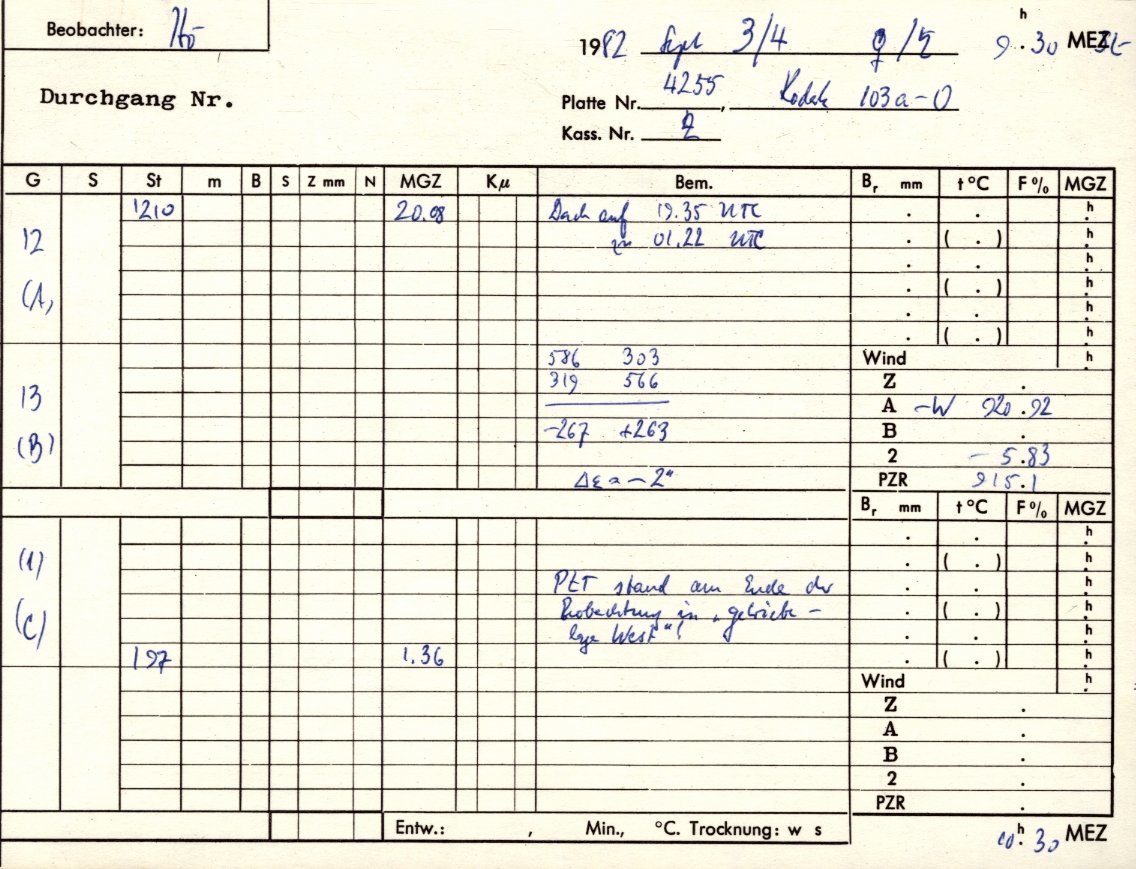 Beobachter: Hö
1982 Sept 3/4 ♀/♄ 9h.30 MEZ
Durchgang Nr.
Platte Nr. 4255, Kodak 103a-O
Kass. Nr. 2
G S St m B S Z mm N MGZ Kμ Bem. Br mm t°C F% MGZ
1210 20.08 Dach auf 19.35 UTC . . h
12 zu 01.22 UTC . ( . ) h
. . h
(A) . ( . ) h
. . h
. ( . ) h
586 303 Wind h
319 566 Z .
13 A -W 920.92
-267 +263 B .
(B) 2 - 5.83
Δε = -2" PZR 915.1
Br mm t°C F% MGZ
. . h
(1) . ( . ) h
PZT stand am Ende der . . h
(C) Beobachtung in „Getriebe- . ( . ) h
lage West"! . . h
197 1.36 . ( . ) h
Wind h
Z .
A .
B .
2 .
PZR .
Entw.: , Min., °C. Trocknung: w s
10h.30 MEZ